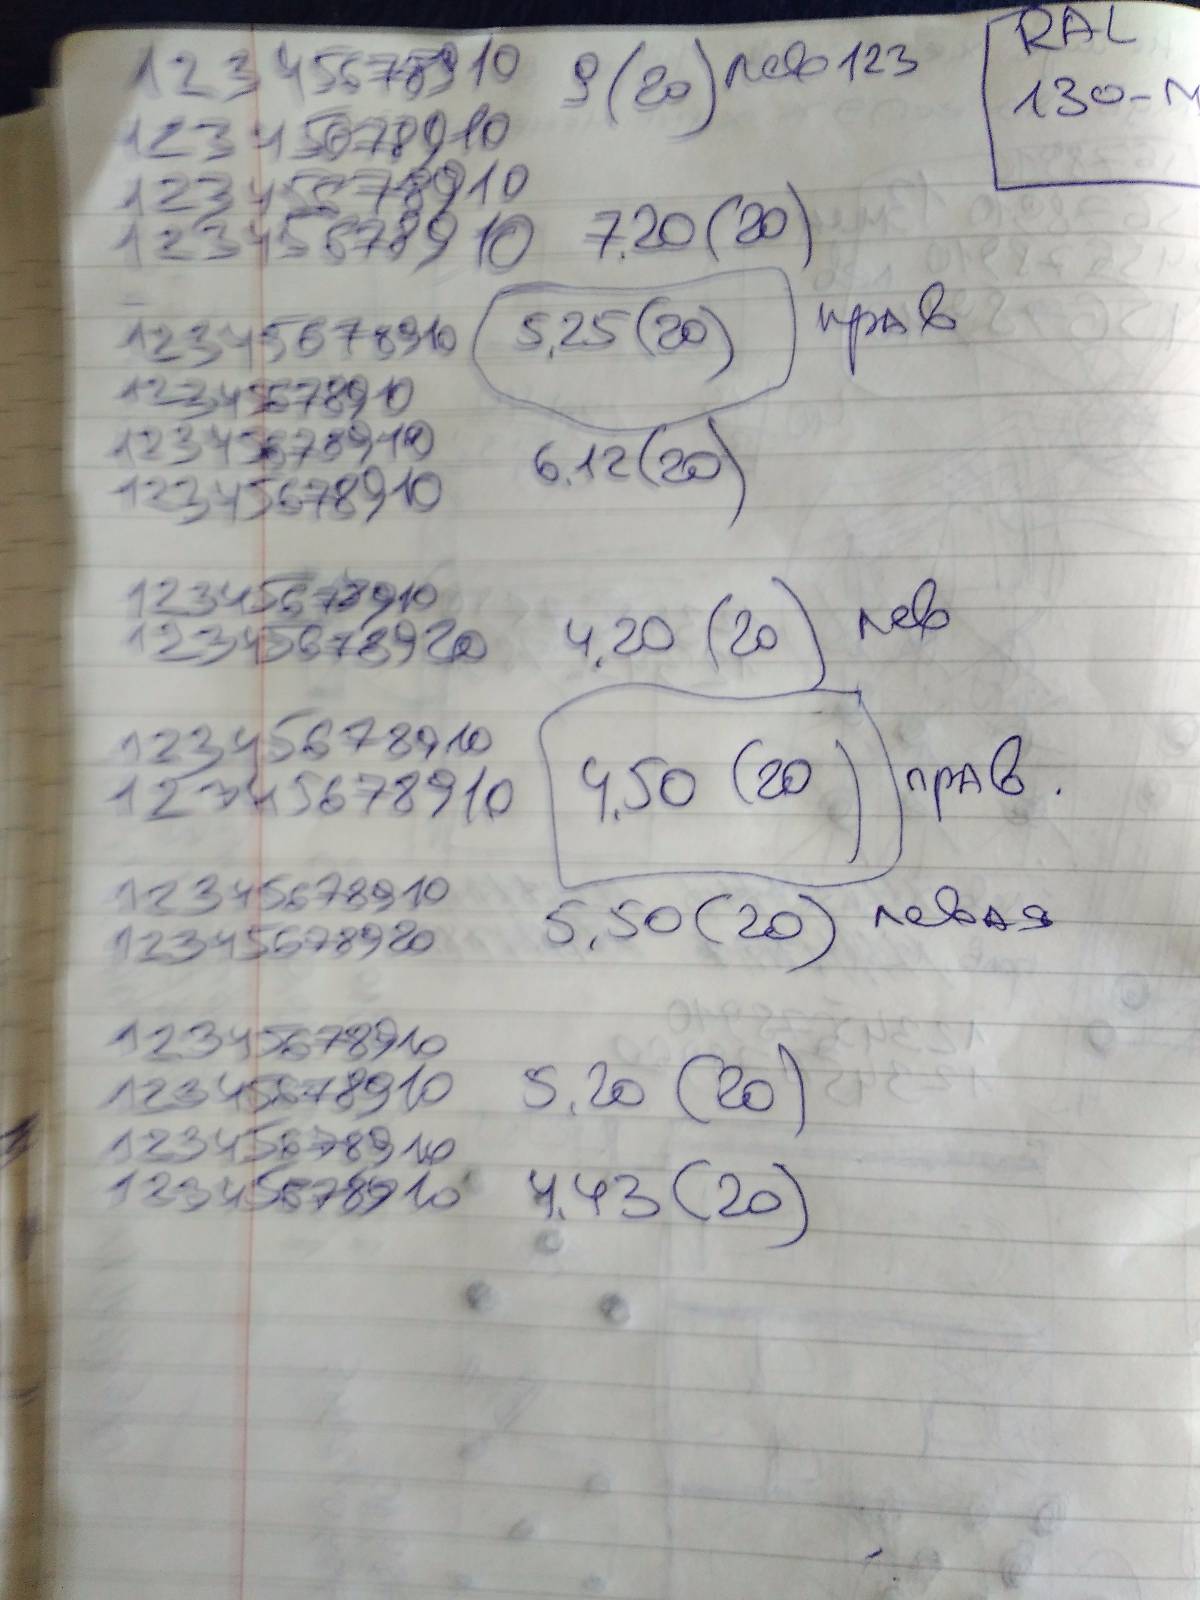 12345678910 9(20) лев 123
RAL
130-М
12345678910
12345678910
12345678910 7.20(20)
12345678910 5,25(20) прав
12345678910
12345678910
12345678910 6.12(20)
12345678910
12345678920 4,20(20) лев
12345678910
12345678910 4,50(20) прав.
12345678910
12345678920 5,50(20) левая
12345678910
12345678910 5.20(20)
12345678910
12345678910 4.43(20)